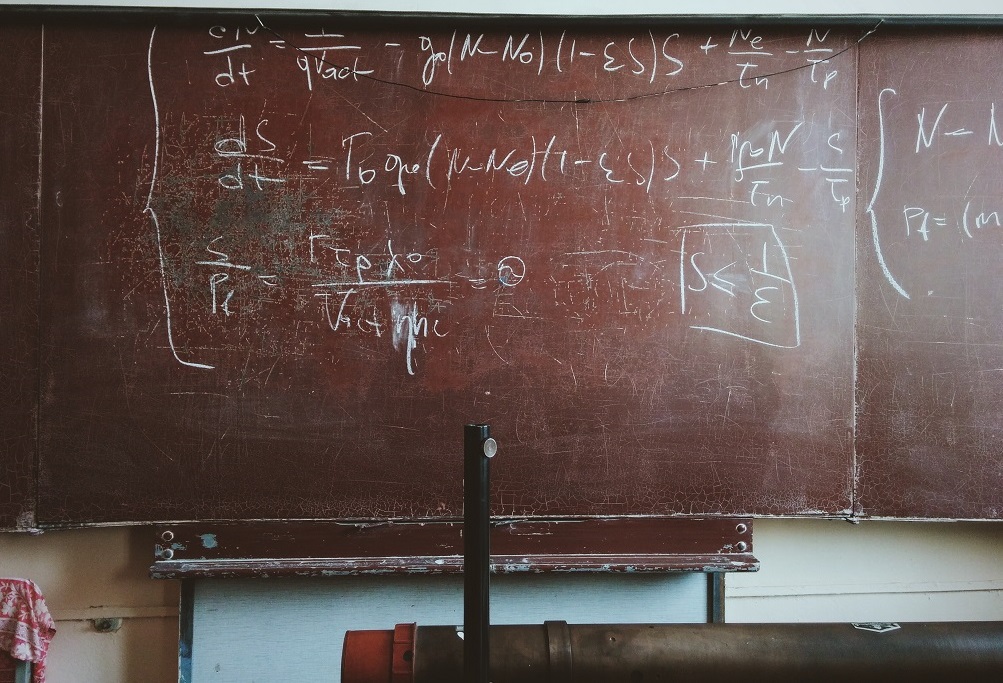 dN/dt = I/qVact - g0(N-N0)(1-εS)S + Ne/τn - N/τp
dS/dt = Γ0 g0(N-N0)(1-εS)S + N/τn - S/τp
S/Pf = Γτpλ0/Vactηhc =
S ≤ 1/ε
N -
Pf = (m